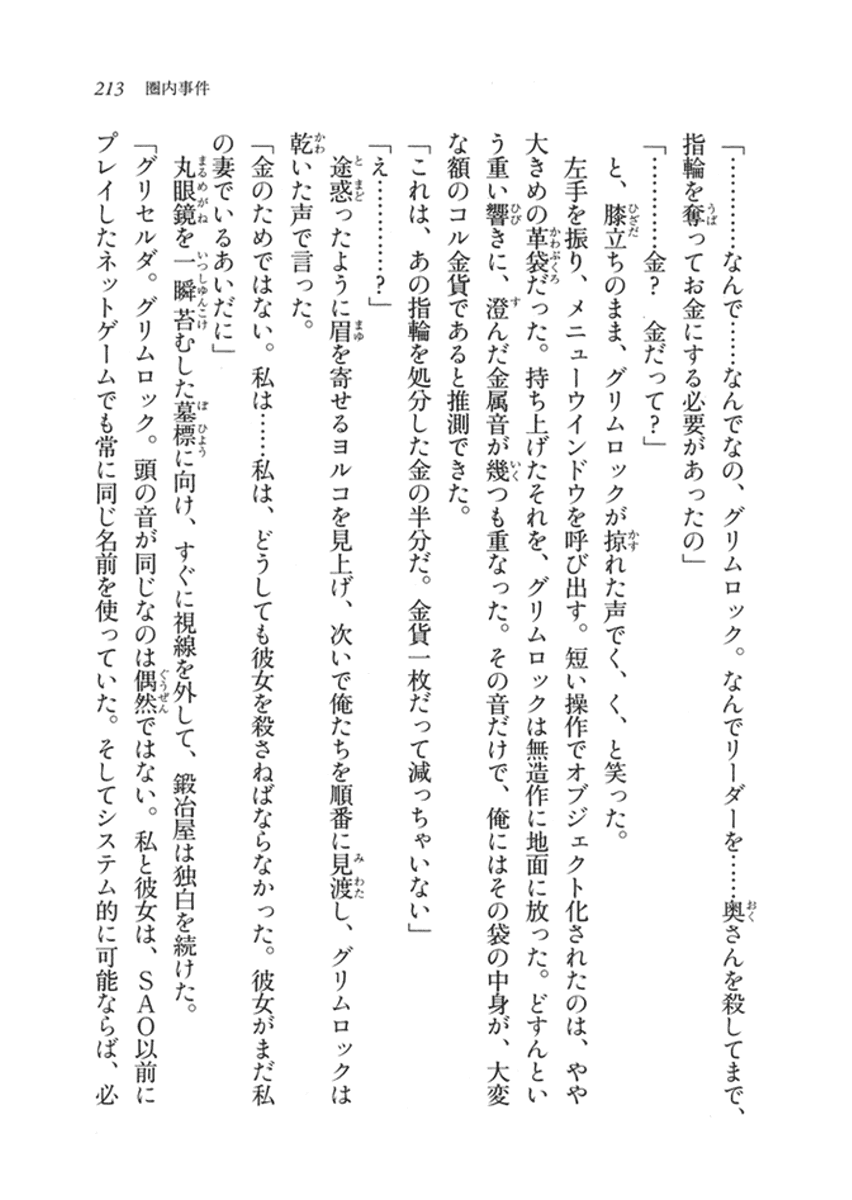 213　圏内事件
「…………なんで……なんでなの、グリムロック。なんでリーダーを……奥さんを殺してまで、
指輪を奪ってお金にする必要があったの」
「…………金？　金だって？」
と、膝立ちのまま、グリムロックが掠れた声でく、く、と笑った。
左手を振り、メニューウインドウを呼び出す。短い操作でオブジェクト化されたのは、やや
大きめの革袋だった。持ち上げたそれを、グリムロックは無造作に地面に放った。どすんとい
う重い響きに、澄んだ金属音が幾つも重なった。その音だけで、俺にはその袋の中身が、大変
な額のコル金貨であると推測できた。
「これは、あの指輪を処分した金の半分だ。金貨一枚だって減っちゃいない」
「え…………？」
途惑ったように眉を寄せるヨルコを見上げ、次いで俺たちを順番に見渡し、グリムロックは
乾いた声で言った。
「金のためではない。私は……私は、どうしても彼女を殺さねばならなかった。彼女がまだ私
の妻でいるあいだに」
丸眼鏡を一瞬苔むした墓標に向け、すぐに視線を外して、鍛冶屋は独白を続けた。
「グリセルダ。グリムロック。頭の音が同じなのは偶然ではない。私と彼女は、ＳＡＯ以前に
プレイしたネットゲームでも常に同じ名前を使っていた。そしてシステム的に可能ならば、必